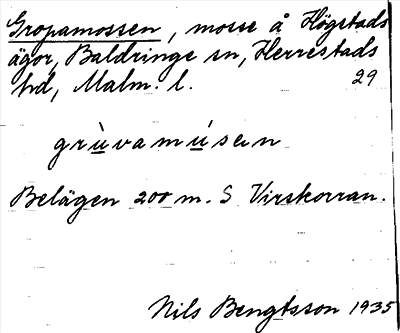 Gropamossen, mosse å Högstads
ägor, Baldringe sn, Herrestads
hd, Malm. l. 29
grùvamúsen
Belägen 200 m. S Virskorran.
Nils Bengtsson 1935